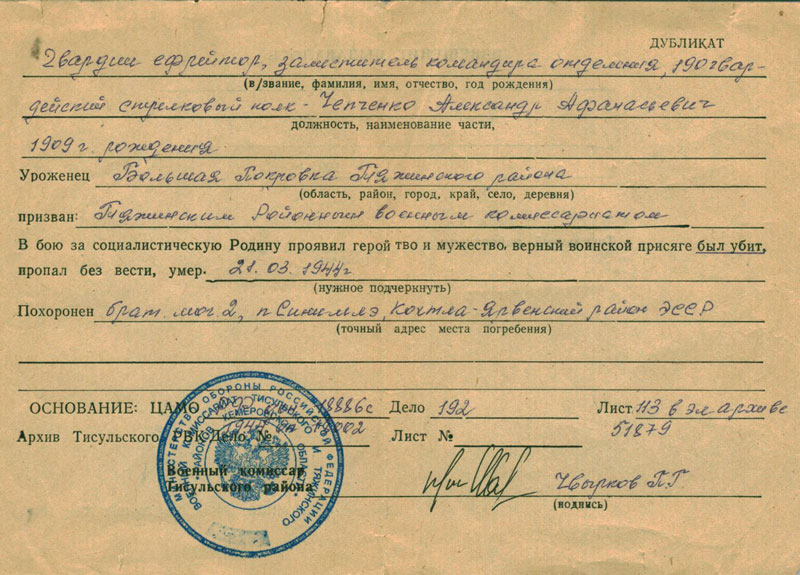 ДУБЛИКАТ
Гвардии ефрейтор, заместитель командира отделения, 190 гвар-
(в/звание, фамилия, имя, отчество, год рождения)
дейский стрелковый полк - Чепченко Александр Афанасьевич
должность, наименование части,
1909 г. рождения
Уроженец Большая Покровка Тяжинского района
(область, район, город, край, село, деревня)
призван: Тяжинским Районным военным комиссариатом
В бою за социалистическую Родину проявил герой тво и мужество, верный воинской присяге был убит,
пропал без вести, умер. 21.03.1944г
(нужное подчеркнуть)
Похоронен брат. мог. 2, п Синимяэ, Кохтла-Ярвенский район ЭССР
(точный адрес места погребения)
ОСНОВАНИЕ: ЦАМО 18886с Дело 192 Лист 113 в эл архиве
Архив Тисульского РВК Дело № 1944 Лист № 51879
Военный комиссар
Тисульского района
Чвырков П.Г.
(подпись)
МИНИСТЕРСТВО ОБОРОНЫ РОССИЙСКОЙ ФЕДЕРАЦИИ
ВОЕННЫЙ КОМИССАРИАТ ТИСУЛЬСКОГО И ТЯЖИНСКОГО
РАЙОНОВ КЕМЕРОВСКОЙ ОБЛАСТИ